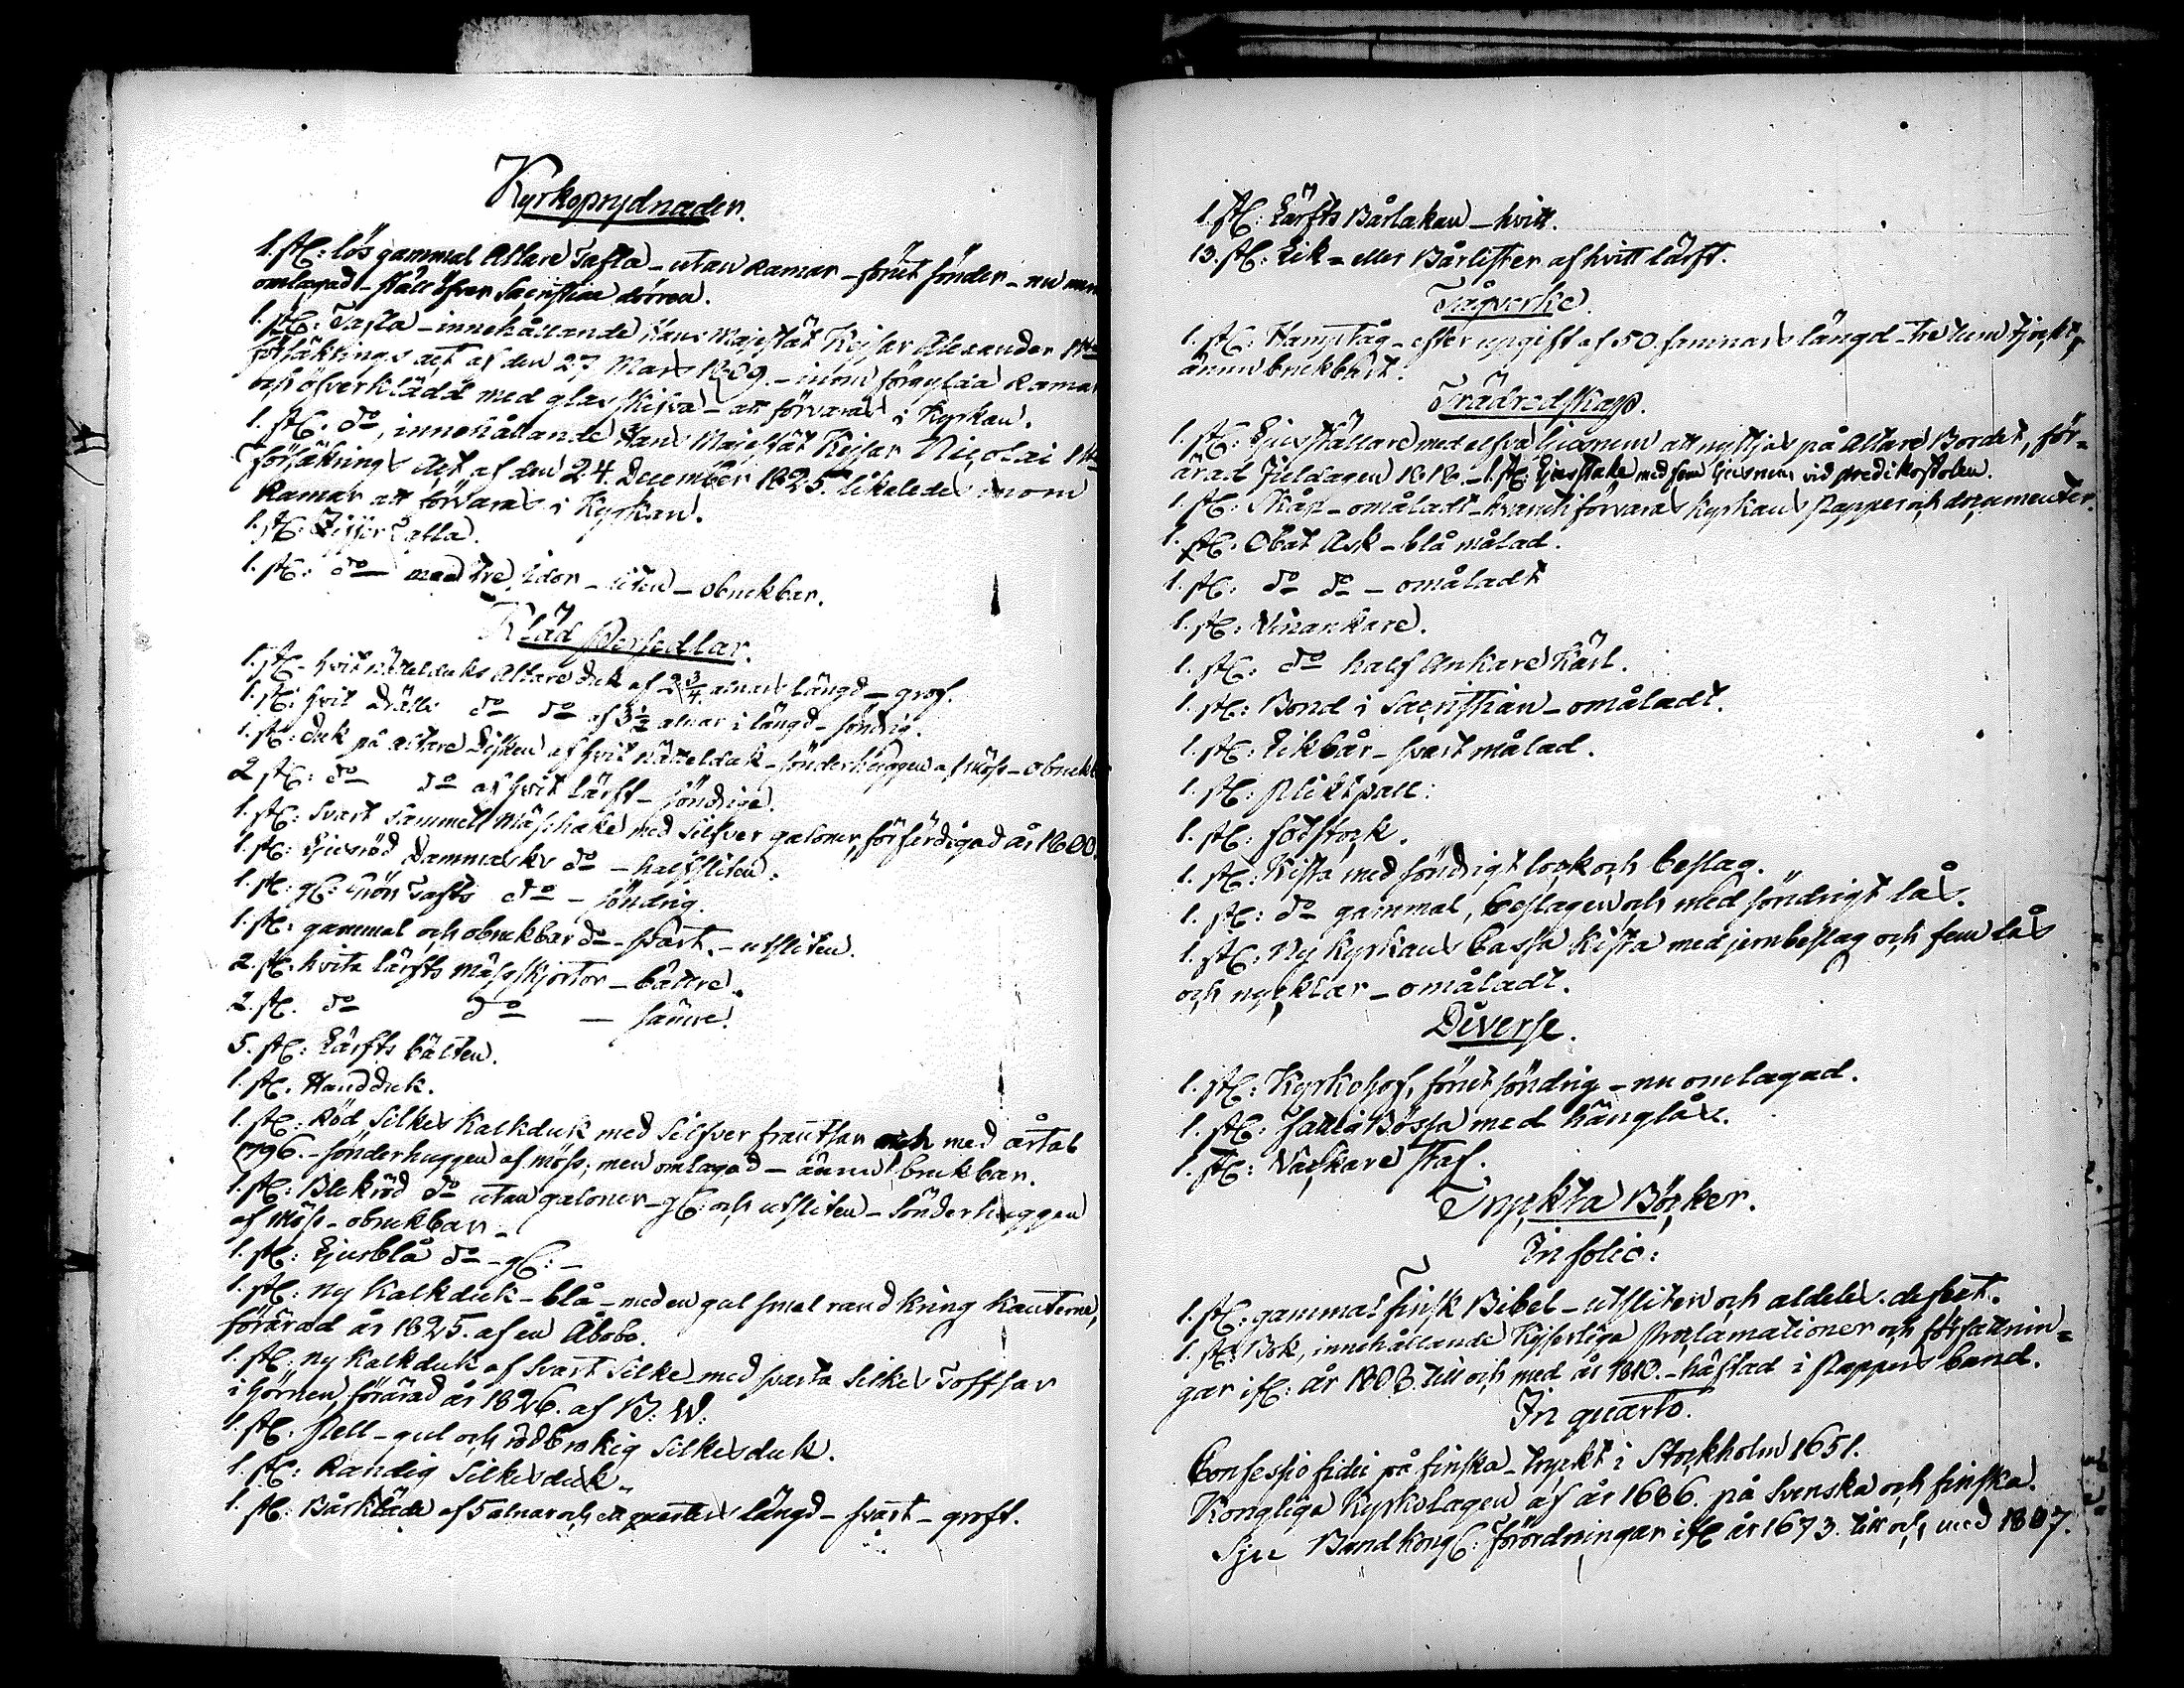 Kyrkoprydnader.
1. st: lös gammal Altare Tafla – utan Ramar – förut sönder – nu
omlagad – ställ öfver Sacristiae dörren.
1. st: Tafla – innehållande Hans Majestät Kejsar Alexander I
försäkrings act af den 27 Mars 1809. – inom förgylda Ramar
och öfverklädd med glas skifva – att förvaras i Kyrkan.
1. st. do, innehållande Hans Majestät Kejsar Nicolai I
Försäkrings Act af den 24. December 1825. likaledes inom
Ramar att förvaras i Kyrkan.
1. st: Ziffer Tafla.
1. st: do med tre sidor – liten – obrukbar.
Kläd Persedlar.
1. st. hvit nättelduks Altare duk af 2 3/4 alnars längd – grof.
1. st: hvit Dräll do do af 3 1/2 alnar i längd – söndrig.
1. st: duk på Altare Disken af hvit nättelduk – sönderhuggen af möss – obruk
2 st: do do af hvit lärft – söndriga.
1. st: svart Sammets Mässhake med Silfver galoner, förfärdigad år 1800.
1. st: Ljusröd Dammasks do – halfsliten.
1. st: gl: Grön Tafts do – söndrig.
1. st: gammal och obrukbar do – svart. – utsliten.
2. st. hvita lärfts Mässskjortor – bättre.
2. st. do do – sämre.
5. st: Lärfts bälten.
1. st. Handduk.
1. st: Röd Silkes Kalkduk med Silfver frantsar och med årtal
1796. – sönderhuggen af möss, men omlagad – ännu brukbar.
1. st: Blekröd do utan galoner – gl: och utsliten – sönderhuggen
af Möss – obrukbar –
1. st: Ljusblå do – gl: –
1. st: ny Kalkduk – blå – med en gul smal rand kring kanterna,
förärad år 1825. af en Åbobo.
1. st: ny Kalkduk af svart Silke – med svarta Silkes Toffsar
i hörnen, förärad år 1826. af B: W:
1. st: Pell – gul och rödbrokig Silkesduk.
1. st: Randig Silkesduk.
1. st: Bårkläde af 5 alnar och ett quarters längd – svart – groft.
1. st: Lärfts Bårlakan – hvitt.
13. st: Lik- eller Bårlister af hvitt lärft.
Tågverke.
1. st: Hamptåg – efter upgift af 50 famnars längd – tre tum tjockt,
ännu brukbart.
Trädredskap.
1. st: Ljusställare med elfva ljusarm att nyttjas på Altare Bordet, för-
ärad Juldagen 1818. – 1. st: Ljusstake med fem ljusarm vid predikostolen.
1. st: Skåp – omåladt – hvaruti förvaras Kyrkans Papper och documenter.
1. st: Oblat Ask – blå målad.
1. st: do do – omåladt
1. st: Vinankare.
1. st: do half Ankare Kärl.
1. st: Bord i Sacristian – omåladt.
1. st: Likbår – svart målad.
1. st: Pliktpall:
1. st: fotstock.
1. st: Kista med söndrigt lock och beslag.
1. st: do gammal, beslagen och med söndrigt lås.
1. st: Ny Kyrkans Cassa Kista med jernbeslag och fem lås
och nycklar – omåladt.
Diverse.
1. st: Kyrkohof, förut söndrig – nu omlagad.
1. st: Fattig Bössa med hänglås.
1. st: Väckare Staf.
Tryckta Böcker.
In folio:
1. st: gammal finsk Bibel – utsliten och aldeles defect.
1. st: Bok, innehållande Kejserliga Proclamationer och författnin-
gar ifr: år 1808. till och med år 1810. – häftad i Pappers band.
In quarto.
Confessio fidei på finska – tryckt i Stockholm 1651.
Kongliga Kyrkolagen af år 1686. på Svenska och finska.
Sju Band kongl: förordningar ifr år 1673. till och med 1807.